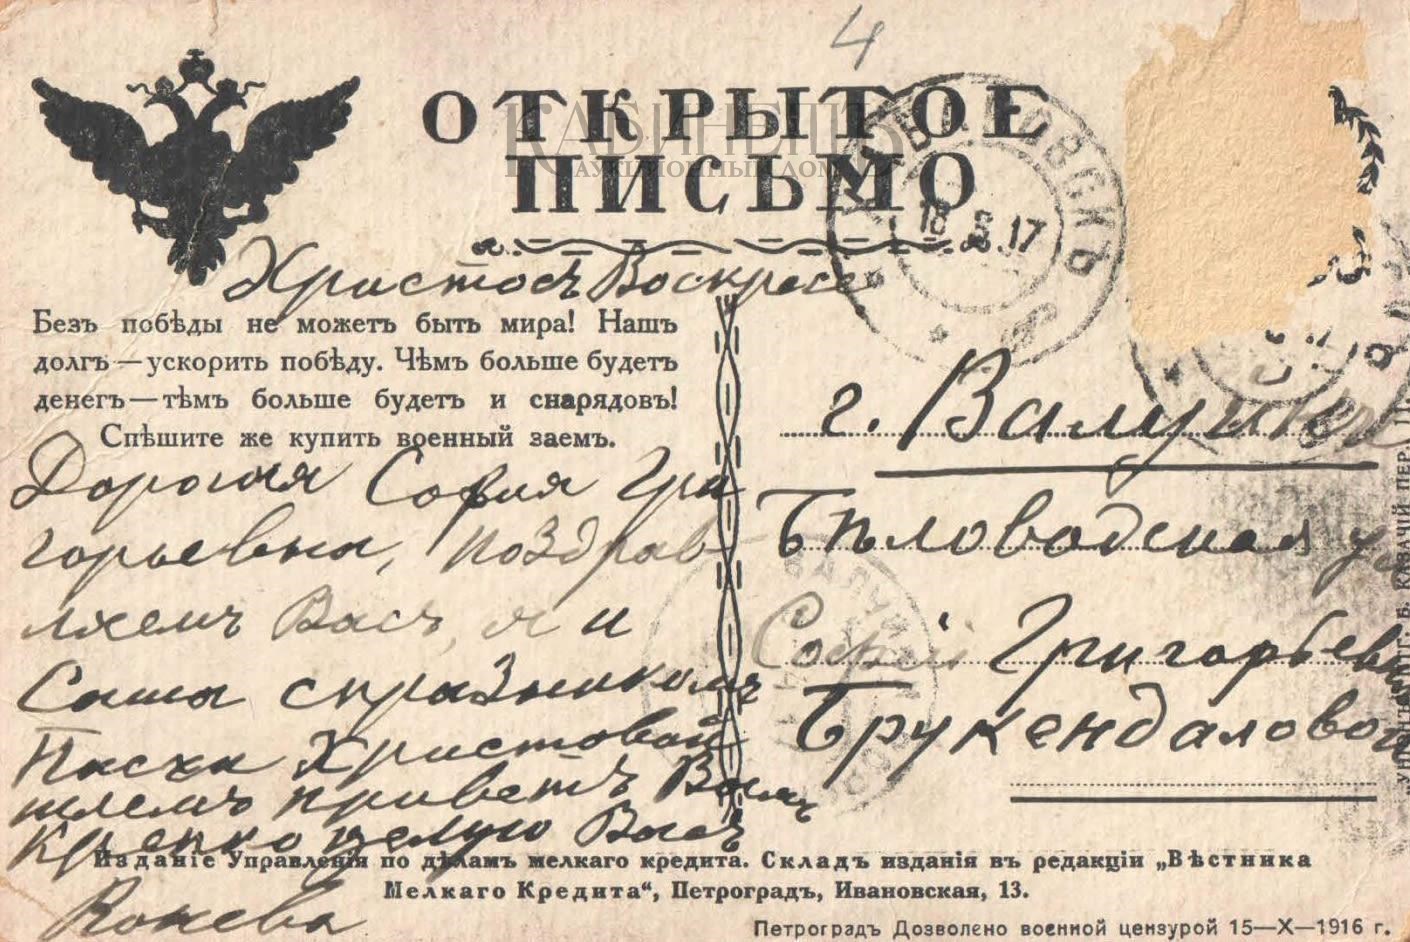 4
ОТКРЫТОЕ
ПИСЬМО
КАБИНЕТЪ
АУКЦИОННЫЙ ДОМ
18 3 17
Христосъ Воскресе
Безъ побѣды не можетъ быть мира! Нашъ
долгъ—ускорить побѣду. Чѣмъ больше будетъ
денегъ—тѣмъ больше будетъ и снарядовъ!
Спѣшите же купить военный заемъ.
Дорогая София Гри
горьевна, поздрав
ляемъ Васъ, я и
Саша спраздникомъ
Пасхи Христовой
шлемъ приветъ Вамъ
Крепко целую Васъ
г. Валуйки
Бѣловодская у
Софіи Григорьевн
Брукендаловой
Изданіе Управленія по дѣламъ мелкаго кредита. Складъ изданія въ редакціи „Вѣстника
Мелкаго Кредита“, Петроградъ, Ивановская, 13.
Петроградъ Дозволено военной цензурой 15—X—1916 г.
КАЗАЧІЙ ПЕР. 11.